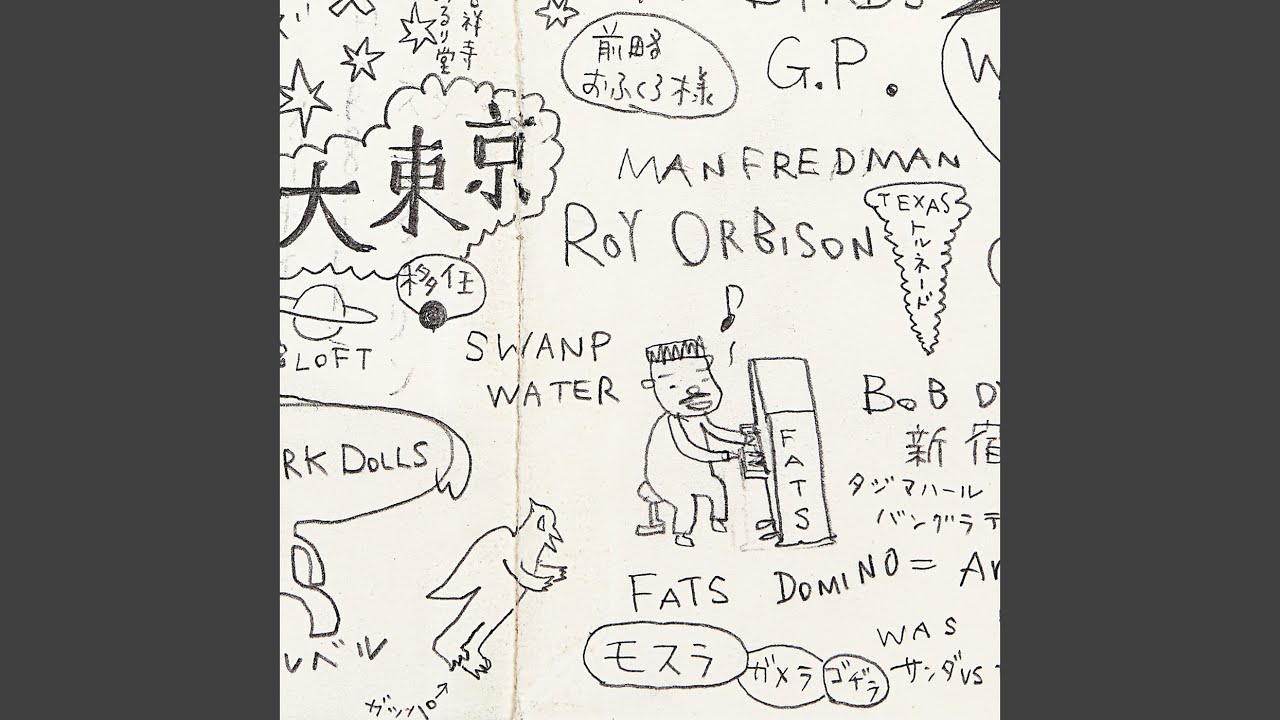 吉祥寺
るり堂
BYRDS
前略
おふくろ様
G.P.
W
大東京
MANFREDMAN
TEXAS
トルネード
ROY ORBISON
移住
LOFT
SWANP
WATER
BOB D
新宿
FATS
RK DOLLS
タジマハール
バングラデ
FATS DOMINO = Ar
WAS
モスラ
ガメラ
ゴヂラ
サンダVS
レベル
ガッパ→